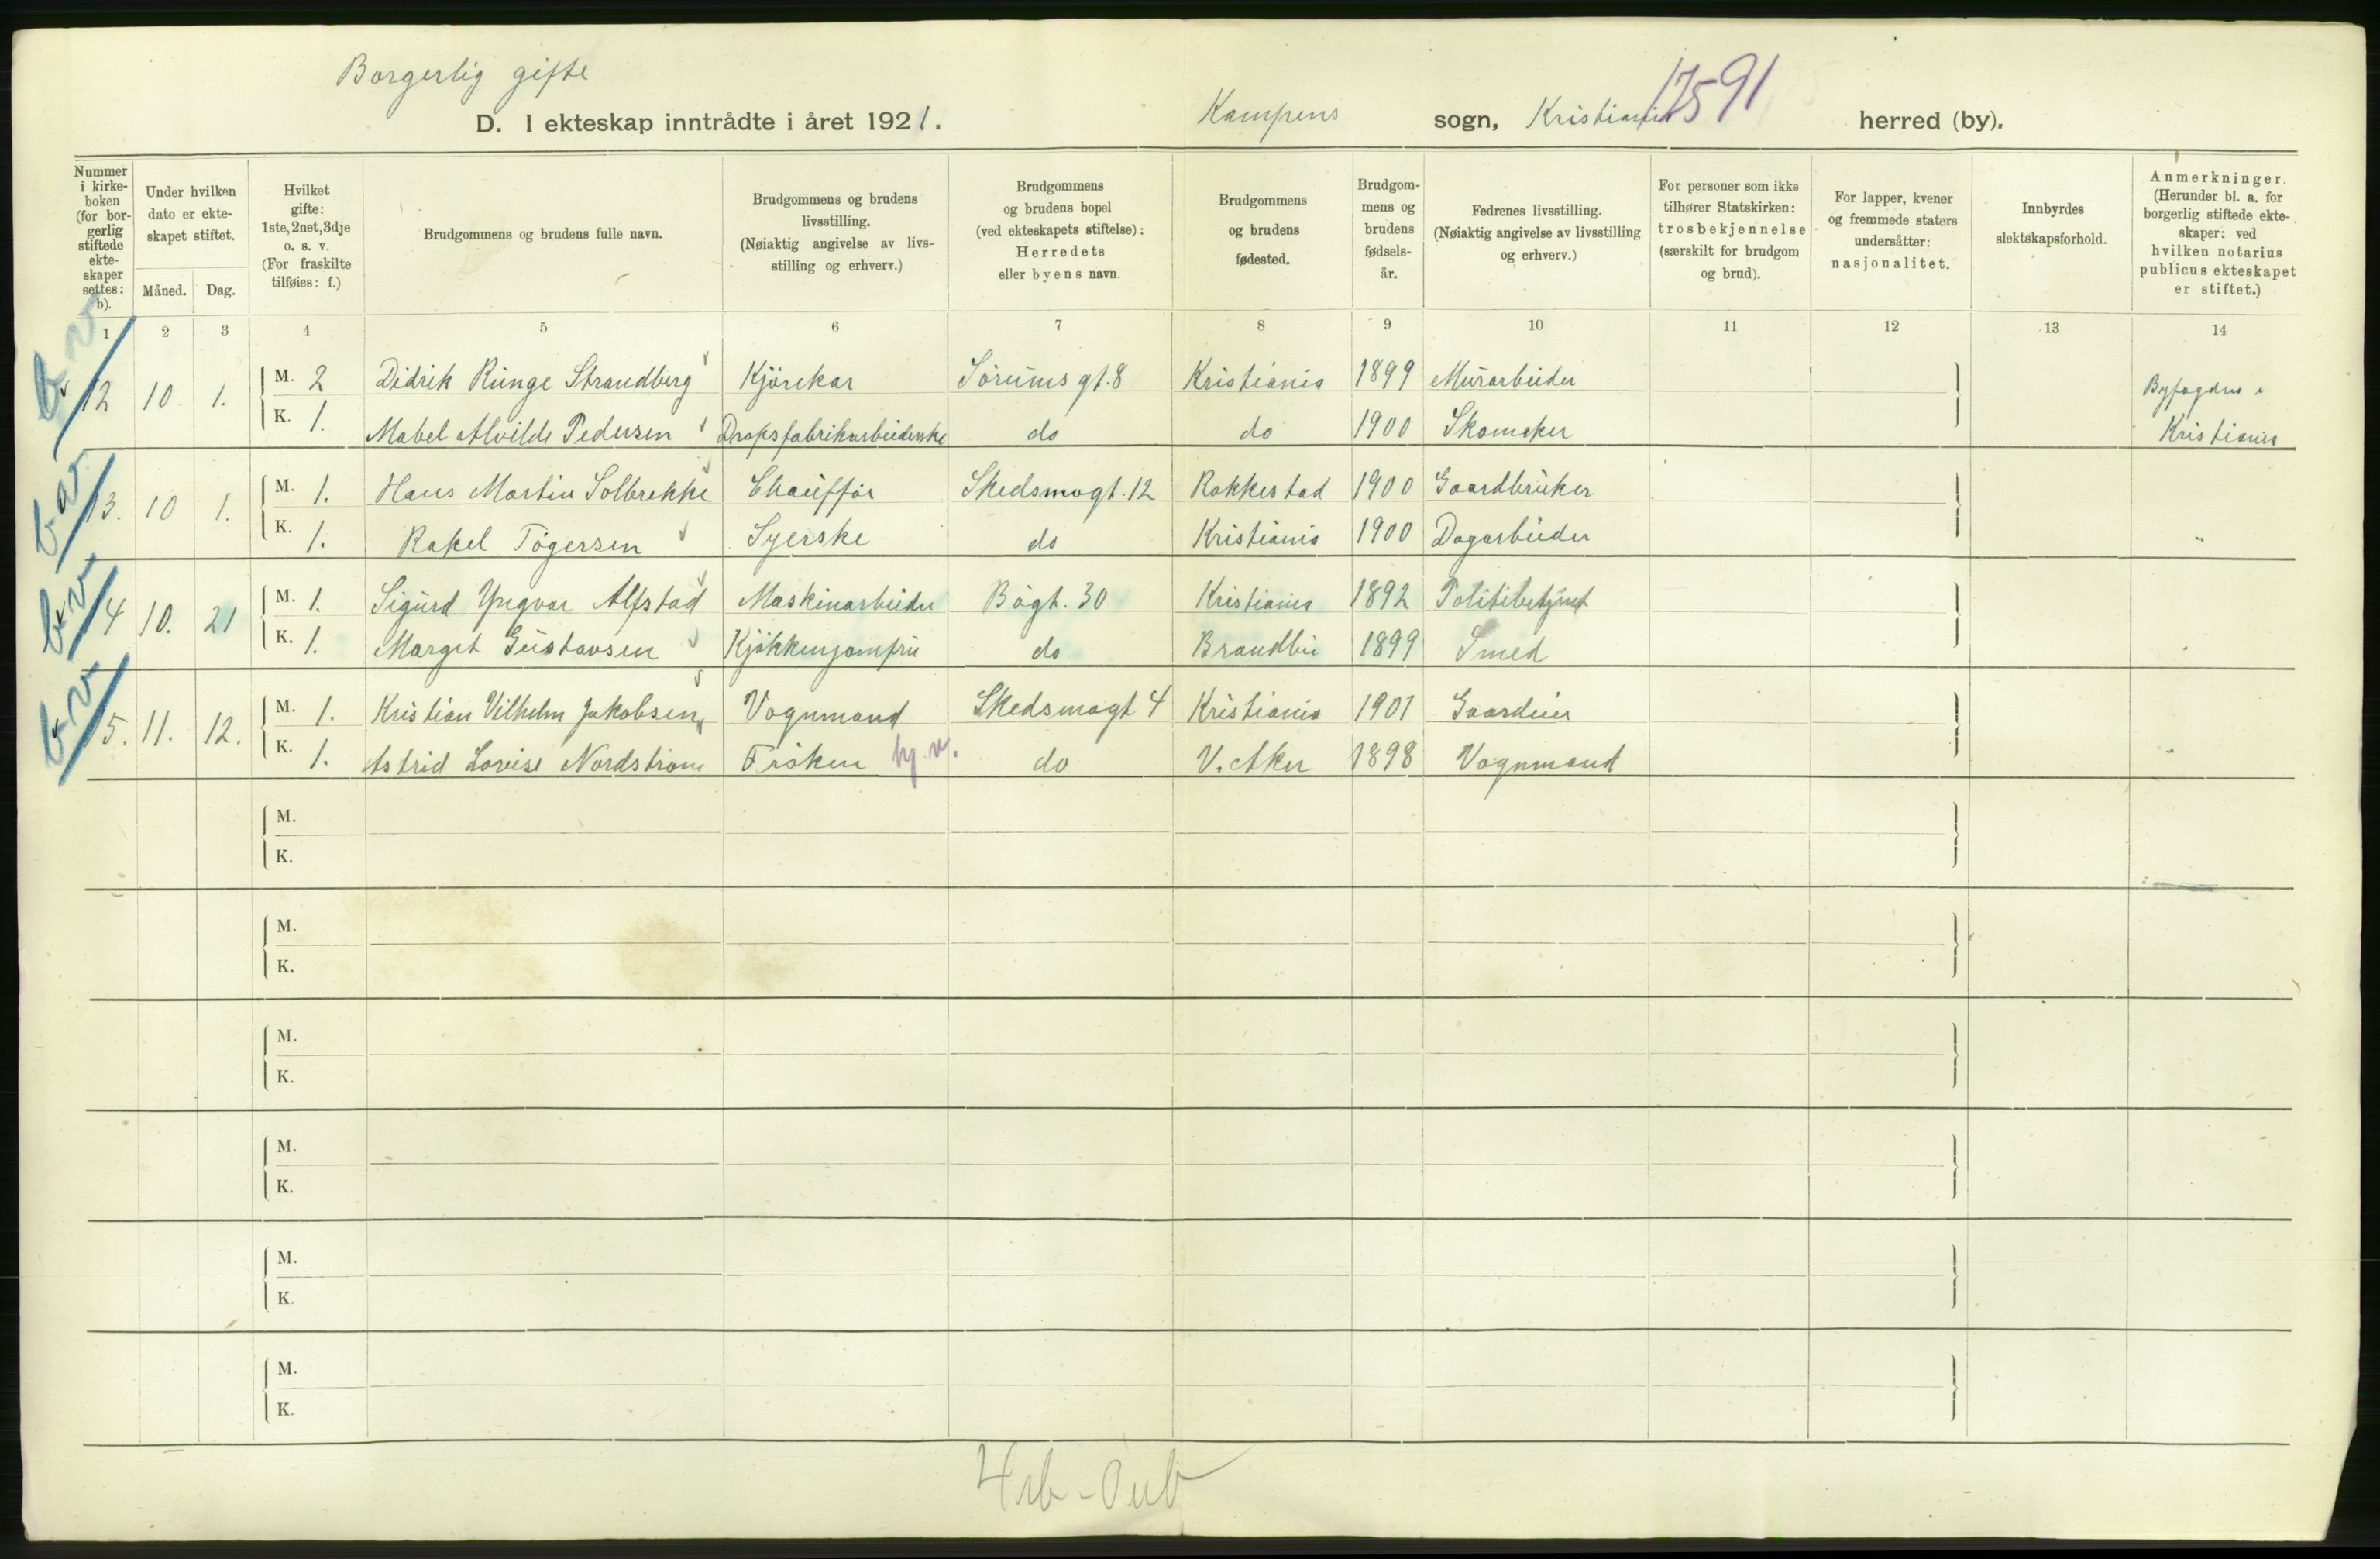 Borgerlig gifte
17591
D. I ekteskap inntrådte i året 1921. Kampens sogn, Kristiania herred (by).
Nummer i kirke-boken (for bor-gerlig stiftede ekte-skaper settes: b).
Under hvilken dato er ekte-skapet stiftet.
Måned. Dag.
Hvilket gifte: 1ste, 2net, 3dje o. s. v. (For fraskilte tilføies: f.)
Brudgommens og brudens fulle navn.
Brudgommens og brudens livsstilling. (Nøiaktig angivelse av livs-stilling og erhverv.)
Brudgommens og brudens bopel (ved ekteskapets stiftelse): Herredets eller byens navn.
Brudgommens og brudens fødested.
Brudgom-mens og brudens fødsels-år.
Fedrenes livsstilling. (Nøiaktig angivelse av livsstilling og erhverv.)
For personer som ikke tilhører Statskirken: trosbekjennelse (særskilt for brudgom og brud).
For lapper, kvener og fremmede staters undersåtter: nasjonalitet.
Innbyrdes slektskapsforhold.
Anmerkninger. (Herunder bl. a. for borgerlig stiftede ekte-skaper: ved hvilken notarius publicus ekteskapet er stiftet.)
1 2 3 4 5 6 7 8 9 10 11 12 13 14
12 10. 1. M. 2 Didrik Runge Strandberg Kjörekar Sørums gt. 8 Kristiania 1899 Murarbeider Byfogden i
K. 1. Mabel Alvilde Pedersen Dropsfabrikarbeiderske do do 1900 Skomaker Kristiania
13. 10 1. M. 1. Hans Martin Solbrekke Chauffør Skedsmogt. 12 Rakkestad 1900 Gaardbruker
K. 1. Rakel Tøgersen Syerske do Kristiania 1900 Dagarbeider "
14 10. 21 M. 1. Sigurd Yngvar Alfstad Maskinarbeider Bøgt. 30 Kristiania 1892 Politibetjent
K. 1. Margit Gustavsen Kjøkkenjomfru do Brandbu 1899 Smed "
15. 11. 12. M. 1. Kristian Vilhelm Jakobsen Vognmand Skedsmogt 4 Kristiania 1901 Gaardeier
K. 1. Astrid Lovise Nordstrøm Frøken hj.v. do V. Aker 1898 Vognmand "
M.
K.
M.
K.
M.
K.
M.
K.
M.
K.
M.
K.